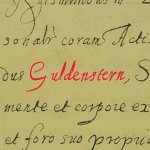 sonalr coram Acti
dus Guldenstern, S
mente et corpore ex
et foro suo propri